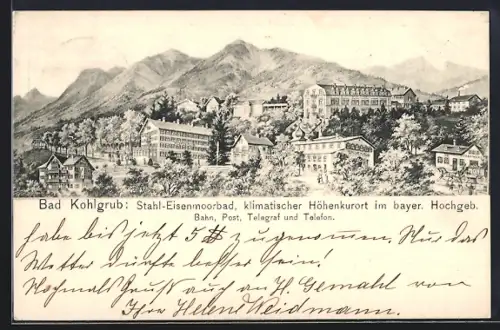 Bad Kohlgrub: Stahl-Eisenmoorbad, klimatischer Höhenkurort im bayer. Hochgeb.
Bahn, Post, Telegraf und Telefon.
habe bis jetzt 5 ℔ zugenommen. Nur das
Wetter dürfte besser sein!
Nochmals Gruß auch an H. Gemahl von
Ihrer Helene Weidmann.